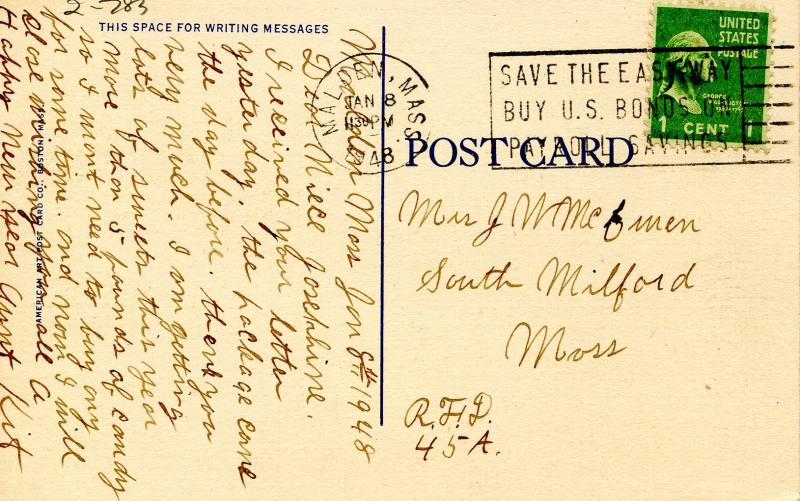 2-283
THIS SPACE FOR WRITING MESSAGES
Malden Mass Jan 8th 1948
Dear Niece Josephine.
I received your letter
yesterday. the package came
the day before. thank you
very much. I am getting
lots of sweets this year
more than 5 pounds of candy
so I wont need to buy any
for some time. and now I will
close wishing you all a
Happy New year Aunt Kit
AMERICAN ART POST CARD CO., BOSTON, MASS.
MALDEN, MASS.
JAN 8
130 PM
1948
SAVE THE EASY WAY
BUY U.S. BONDS ON
PAYROLL SAVINGS
UNITED
STATES
POSTAGE
GEORGE
WASHINGTON
1 CENT 1
POST CARD
Mrs J W McEwen
South Milford
Mass
R.F.D.
45A.